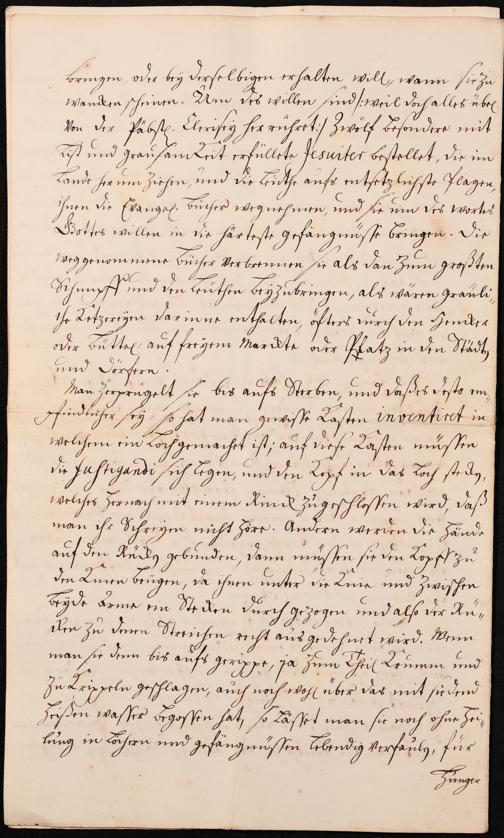 bringen, oder bey derselbigen erhalten will, wann sie zu
wancken scheinen. Um des willen sind /: weil doch alles übel
von der Päbstl. Clerisey herrühret :/ Zwölf besondere mit
List und Grausamkeit erfüllete Jesuiter bestellet, die im
Lande herum ziehen, und die Leuthe aufs entsetzlichste plagen,
ihnen die Evangel. bücher wegnehmen, und sie um des wortes
Gottes willen in die härteste gefängnüsse bringen. Die
weggenommene Bücher verbrennen sie als dan zum großten
Schimpff und den Leuthen beyzubringen, als wären greuli-
che Ketzereyen darinne enthalten, öfters durch den Hencker
oder Büttel, auf freyem Marckte oder Platz in den Städten
und Dörfern.
Man zerprügelt sie bis aufs Sterben, und daß es desto em-
pfindlicher sey, so hat man gewisse Kasten inventiret in
welchem ein Loch gemachet ist; auf diese Kasten müssen
die fustigandi sich legen, und den Kopf in das Loch stecken,
welches hernach mit einem Rinck zugeschlossen wird, daß
man ihr Schreyen nicht höre. Andern werden die Hände
auf den Rücken gebunden, dann müssen sie den Kopff zu
den Knien beugen, da ihnen unter die Knie und zwischen
beyde Arme ein Stecken durch gezogen und also der Rü-
cken zu denen Streichen recht aus gedehnet wird. Wenn
man sie denn bis aufs gerippe, ja zum Theil Krumm und
zu Krippeln geschlagen, auch noch wohl über das mit siedend
heißen wasser begossen hat, so lässet man sie noch ohne Hei-
lung in Löchern und gefängnüssen lebendig verfaulen, für
Hunger